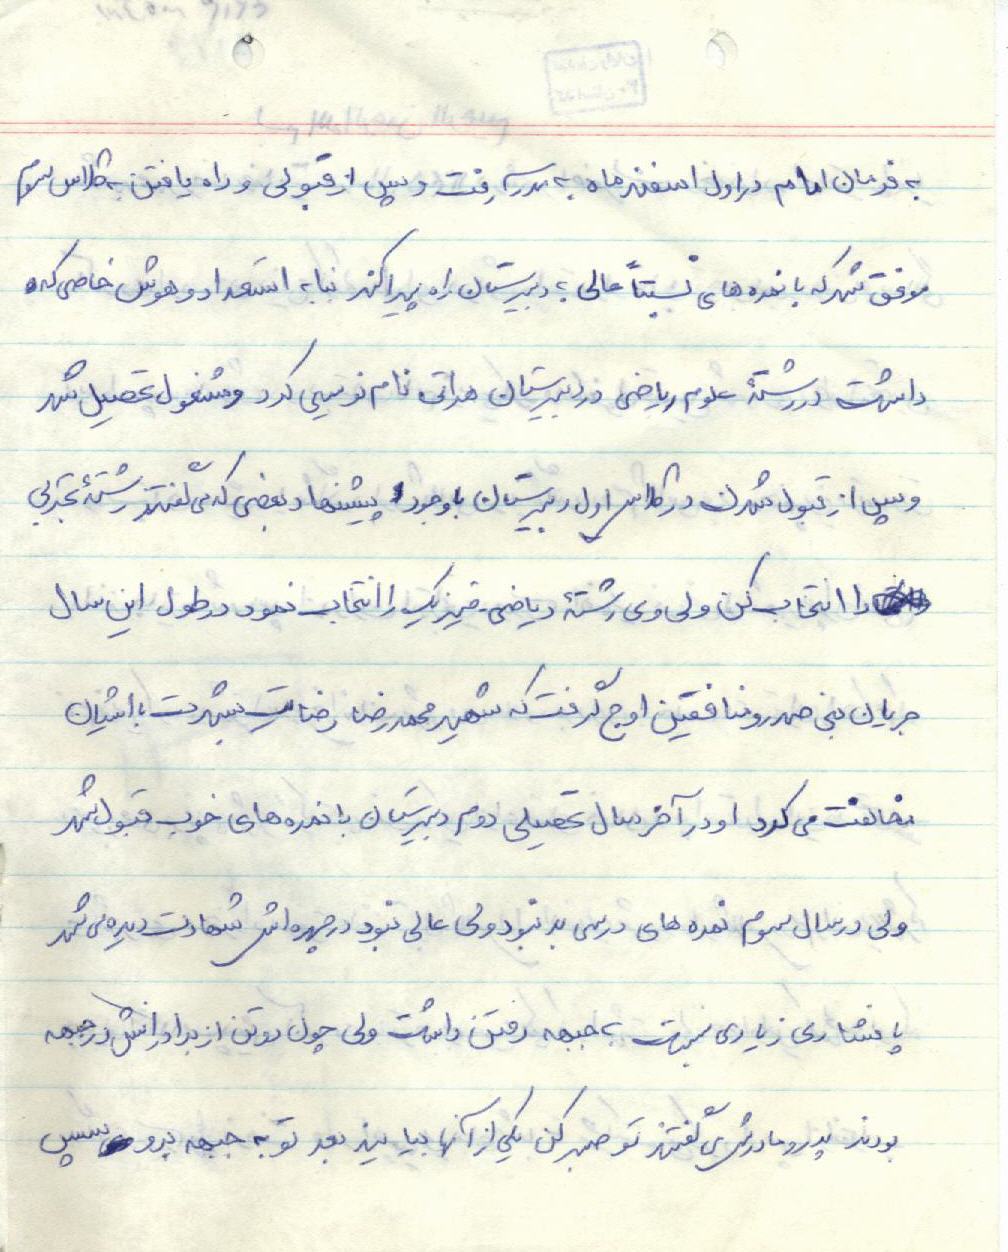 به فرمان امام در اول اسفندماه به مدرسه رفت و پس از قبولی و راه یافتن به کلاس سوم
موفق شد که با نمره‌های نسبتاً عالی به دبیرستان راه پیدا کند بنا به استعداد و هوش خاصی که
داشت در رشتهٔ علوم ریاضی در دبیرستان هراتی نام نویسی کرد و مشغول تحصیل شد
و پس از قبول شدن در کلاس اول دبیرستان با وجود پیشنهاد بعضی که می گفتند رشتهٔ تجربی
را انتخاب کن ولی وی رشتهٔ ریاضی-فیزیک را انتخاب نمود در طول این سال
جریان بنی صدر و منافقین اوج گرفت که شهید محمدرضا رضایت بشدت با اینان
مخالفت می کرد او در آخر سال تحصیلی دوم دبیرستان با نمره های خوب قبول شد
ولی در سال سوم نمره های درسی بد نبود ولی عالی نبود در چهره اش شهادت دیده می شد
پافشاری زیادی نسبت به جبهه رفتن داشت ولی چون دو تن از برادرانش در جبهه
بودند پدر و مادرش می گفتند تو صبر کن یکی از آنها بیایند بعد تو به جبهه برو سپس